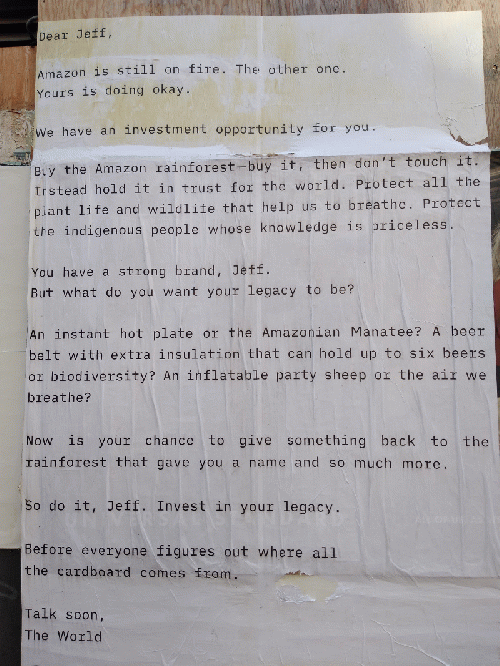 Dear Jeff,
Amazon is still on fire. The other one.
Yours is doing okay.
We have an investment opportunity for you.
Buy the Amazon rainforest—buy it, then don't touch it.
Instead hold it in trust for the world. Protect all the
plant life and wildlife that help us to breathe. Protect
the indigenous people whose knowledge is priceless.
You have a strong brand, Jeff.
But what do you want your legacy to be?
An instant hot plate or the Amazonian Manatee? A beer
belt with extra insulation that can hold up to six beers
or biodiversity? An inflatable party sheep or the air we
breathe?
Now is your chance to give something back to the
rainforest that gave you a name and so much more.
So do it, Jeff. Invest in your legacy.
Before everyone figures out where all
the cardboard comes from.
Talk soon,
The World